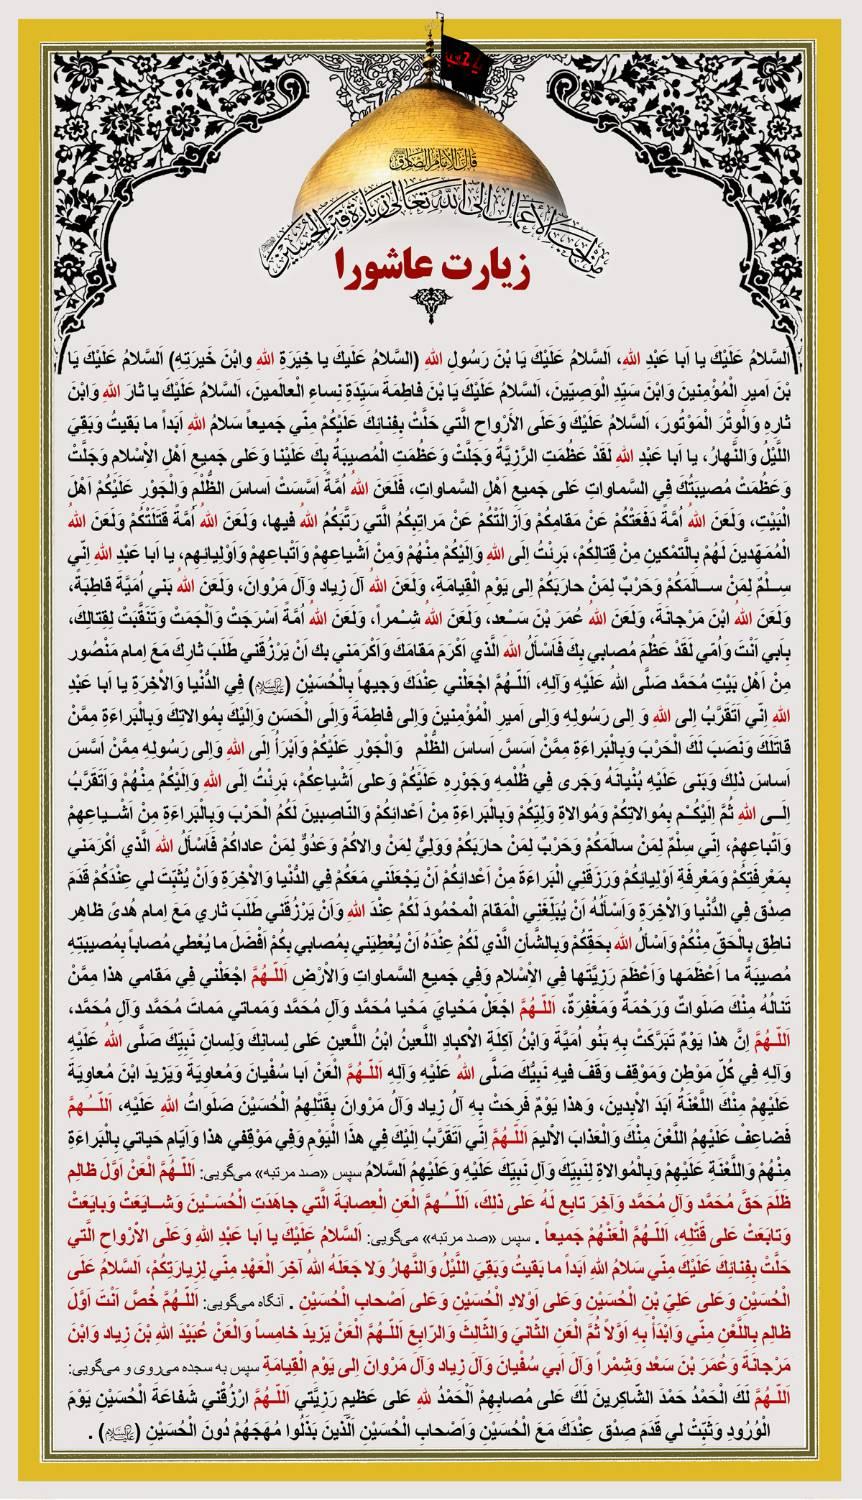 قال الإمام الصادق
من احب الأعمال الى الله تعالى زيارة قبر الحسين
زیارت عاشورا
اَلسَّلامُ عَلَيْكَ يا اَبا عَبْدِ اللهِ، اَلسَّلامُ عَلَيْكَ يَا بْنَ رَسُولِ اللهِ (السَّلامُ عَلَيكَ يا خِيَرَةِ اللهِ وابْنَ خَيرَتِهِ) اَلسَّلامُ عَلَيْكَ يَا
بْنَ اَميرِ الْمُؤْمِنينَ وَابْنَ سَيِّدِ الْوَصِيّينَ، اَلسَّلامُ عَلَيْكَ يَا بْنَ فاطِمَةَ سَيِّدَةِ نِساءِ الْعالَمينَ، اَلسَّلامُ عَلَيْكَ يا ثارَ اللهِ وَابْنَ
ثارِهِ وَالْوِتْرَ الْمَوْتُورَ، اَلسَّلامُ عَلَيْكَ وَعَلَى الأَرْواحِ الَّتي حَلَّتْ بِفِنائِكَ عَلَيْكُمْ مِنّي جَميعاً سَلامُ اللهِ اَبَداً ما بَقيتُ وَبَقِيَ
اللَّيْلُ وَالنَّهارُ، يا اَبا عَبْدِ اللهِ لَقَدْ عَظُمَتِ الرَّزِيَّةُ وَجَلَّتْ وَعَظُمَتِ الْمُصيبَةُ بِكَ عَلَيْنا وَعَلى جَميعِ اَهْلِ الاْسْلامِ وَجَلَّتْ
وَعَظُمَتْ مُصيبَتُكَ فِي السَّماواتِ عَلى جَميعِ اَهْلِ السَّماواتِ، فَلَعَنَ اللهُ اُمَّةً اَسَّسَتْ اَساسَ الظُّلْمِ وَالْجَوْرِ عَلَيْكُمْ اَهْلَ
الْبَيْتِ، وَلَعَنَ اللهُ اُمَّةً دَفَعَتْكُمْ عَنْ مَقامِكُمْ وَاَزالَتْكُمْ عَنْ مَراتِبِكُمُ الَّتي رَتَّبَكُمُ اللهُ فيها، وَلَعَنَ اللهُ اُمَّةً قَتَلَتْكُمْ وَلَعَنَ اللهُ
الْمُمَهِّدينَ لَهُمْ بِالَّتمْكينِ مِنْ قِتالِكُمْ، بَرِئْتُ اِلَى اللهِ وَاِلَيْكُمْ مِنْهُمْ وَمِنْ اَشْياعِهِمْ وَاَتْباعِهِمْ وَاَوْلِيائِهِم، يا اَبا عَبْدِ اللهِ اِنّي
سِـلْمٌ لِمَنْ سـالَمَكُمْ وَحَرْبٌ لِمَنْ حارَبَكُمْ اِلى يَوْمِ الْقِيامَةِ، وَلَعَنَ اللهُ آلَ زِياد وَآلَ مَرْوانَ، وَلَعَنَ اللهُ بَني اُمَيَّةَ قاطِبَةً،
وَلَعَنَ اللهُ ابْنَ مَرْجانَةَ، وَلَعَنَ اللهُ عُمَرَ بْنَ سَـعْد، وَلَعَنَ اللهُ شِـمْراً، وَلَعَنَ اللهُ اُمَّةً اَسْرَجَتْ وَاَلْجَمَتْ وَتَنَقَّبَتْ لِقِتالِكَ،
بِاَبي اَنْتَ وَاُمّي لَقَدْ عَظُمَ مُصابي بِكَ فَاَسْأَلُ اللهَ الَّذي اَكْرَمَ مَقامَكَ وَاَكْرَمَني بِكَ اَنْ يَرْزُقَني طَلَبَ ثارِكَ مَعَ اِمام مَنْصُور
مِنْ اَهْلِ بَيْتِ مُحَمَّد صَلَّى اللهُ عَلَيْهِ وَآلِهِ، اَللّـهُمَّ اجْعَلْني عِنْدَكَ وَجيهاً بِالْحُسَيْنِ (عليه السلام) فِي الدُّنْيا وَالاْخِرَةِ يا اَبا عَبْدِ
اللهِ اِنّي اَتَقَرَّبُ اِلى اللهِ وَ اِلى رَسُولِهِ وَاِلى اَميرِ الْمُؤْمِنينَ وَاِلى فاطِمَةَ وَاِلَى الْحَسَنِ وَاِلَيْكَ بِمُوالاتِكَ وَبِالْبَراءَةِ مِمَّنْ
قاتَلَكَ وَنَصَبَ لَكَ الْحَرْبَ وَبِالْبَراءَةِ مِمَّنْ اَسَسَّ اَساسَ الظُّلْمِ وَالْجَوْرِ عَلَيْكُمْ وَاَبْرَأُ اِلَى اللهِ وَاِلى رَسُولِهِ مِمَّنْ اَسَّسَ
اَساسَ ذلِكَ وَبَنى عَلَيْهِ بُنْيانَهُ وَجَرى فِي ظُلْمِهِ وَجَوْرِهِ عَلَيْكُمْ وَعلى اَشْياعِكُمْ، بَرِئْتُ اِلَى اللهِ وَاِلَيْكُمْ مِنْهُمْ وَاَتَقَرَّبُ
اِلَــى اللهِ ثُمَّ اِلَيْكُــمْ بِمُوالاتِكُمْ وَمُوالاةِ وَلِيِّكُمْ وَبِالْبَراءَةِ مِنْ اَعْدائِكُمْ وَالنّاصِبينَ لَكُمُ الْحَرْبَ وَبِالْبَراءَةِ مِنْ اَشْـياعِهِمْ
وَاَتْباعِهِمْ، اِنّي سِلْمٌ لِمَنْ سالَمَكُمْ وَحَرْبٌ لِمَنْ حارَبَكُمْ وَوَلِيٌّ لِمَنْ والاكُمْ وَعَدُوٌّ لِمَنْ عاداكُمْ فَاَسْأَلُ اللهَ الَّذي أكْرَمَني
بِمَعْرِفَتِكُمْ وَمَعْرِفَةِ اَوْلِيائِكُمْ وَرَزَقَنِي الْبَراءَةَ مِنْ اَعْدائِكُمْ اَنْ يَجْعَلَني مَعَكُمْ فِي الدُّنْيا وَالاْخِرَةِ وَاَنْ يُثَبِّتَ لي عِنْدَكُمْ قَدَمَ
صِدْق فِي الدُّنْيا وَالاْخِرَةِ وَاَسْأَلُهُ اَنْ يُبَلِّغَنِي الْمَقامَ الْمَحْمُودَ لَكُمْ عِنْدَ اللهِ وَاَنْ يَرْزُقَني طَلَبَ ثاري مَعَ اِمام هُدىً ظاهِر
ناطِق بِالْحَقِّ مِنْكُمْ وَاَسْألُ اللهَ بِحَقِّكُمْ وَبِالشَّأنِ الَّذي لَكُمْ عِنْدَهُ اَنْ يُعْطِيَني بِمُصابي بِكُمْ اَفْضَلَ ما يُعْطي مُصاباً بِمُصيبَتِهِ
مُصيبَةً ما اَعْظَمَها وَاَعْظَمَ رَزِيَّتَها فِي الاْسْلامِ وَفِي جَميعِ السَّماواتِ وَالاْرْضِ اَللّـهُمَّ اجْعَلْني في مَقامي هذا مِمَّنْ
تَنالُهُ مِنْكَ صَلَواتٌ وَرَحْمَةٌ وَمَغْفِرَةٌ، اَللّـهُمَّ اجْعَلْ مَحْيايَ مَحْيا مُحَمَّد وَآلِ مُحَمَّد وَمَماتي مَماتَ مُحَمَّد وَآلِ مُحَمَّد،
اَللّـهُمَّ اِنَّ هذا يَوْمٌ تَبَرَّكَتْ بِهِ بَنُو اُمَيَّةَ وَابْنُ آكِلَةِ الاْكبادِ اللَّعينُ ابْنُ اللَّعينِ عَلى لِسانِكَ وَلِسانِ نَبِيِّكَ صَلَّى اللهُ عَلَيْهِ
وَآلِهِ فِي كُلِّ مَوْطِن وَمَوْقِف وَقَفَ فيهِ نَبِيُّكَ صَلَّى اللهُ عَلَيْهِ وَآلِهِ اَللّـهُمَّ الْعَنْ اَبا سُفْيانَ وَمُعاوِيَةَ وَيَزيدَ ابْنَ مُعاوِيَةَ
عَلَيْهِمْ مِنْكَ اللَّعْنَةُ اَبَدَ الاْبِدينَ، وَهذا يَوْمٌ فَرِحَتْ بِهِ آلُ زِياد وَآلُ مَرْوانَ بِقَتْلِهِمُ الْحُسَيْنَ صَلَواتُ اللهِ عَلَيْهِ، اَللّــهُمَّ
فَضاعِفْ عَلَيْهِمُ اللَّعْنَ مِنْكَ وَالْعَذابَ الاْليمَ اَللّـهُمَّ اِنّي اَتَقَرَّبُ اِلَيْكَ فِي هذَا الْيَوْمِ وَفِي مَوْقِفي هذا وَاَيّامِ حَياتي بِالْبَراءَةِ
مِنْهُمْ وَاللَّعْنَةِ عَلَيْهِمْ وَبِالْمُوالاةِ لِنَبِيِّكَ وَآلِ نَبِيِّكَ عَلَيْهِ وَعَلَيْهِمُ اَلسَّلامُ سپس «صد مرتبه» می‌گویی: اَللّـهُمَّ الْعَنْ اَوَّلَ ظالِم
ظَلَمَ حَقَّ مُحَمَّد وَآلِ مُحَمَّد وَآخِرَ تابِع لَهُ عَلى ذلِكَ، اَللّــهُمَّ الْعَنِ الْعِصابَةَ الَّتي جاهَدَتِ الْحُسَـيْنَ وَشــايَعَتْ وَبايَعَتْ
وَتابَعَتْ عَلى قَتْلِهِ، اَللّـهُمَّ الْعَنْهُمْ جَميعاً . سپس «صد مرتبه» می‌گویی: اَلسَّلامُ عَلَيْكَ يا اَبا عَبْدِ اللهِ وَعَلَى الاْرْواحِ الَّتي
حَلَّتْ بِفِنائِكَ عَلَيْكَ مِنّي سَلامُ اللهِ اَبَداً ما بَقيتُ وَبَقِيَ اللَّيْلُ وَالنَّهارُ وَلا جَعَلَهُ اللهُ آخِرَ الْعَهْدِ مِنّي لِزِيارَتِكُمْ، اَلسَّلامُ عَلَى
الْحُسَيْنِ وَعَلى عَلِيِّ بْنِ الْحُسَيْنِ وَعَلى اَوْلادِ الْحُسَيْنِ وَعَلى اَصْحابِ الْحُسَيْنِ . آنگاه می‌گویی: اَللّـهُمَّ خُصَّ اَنْتَ اَوَّلَ
ظالِم بِاللَّعْنِ مِنّي وَابْدَأْ بِهِ اَوَّلاً ثُمَّ الْعَنِ الثّانِيَ وَالثّالِثَ وَالرّابِعَ اَللّـهُمَّ الْعَنْ يَزيدَ خامِساً وَالْعَنْ عُبَيْدَ اللهِ بْنَ زِياد وَابْنَ
مَرْجانَةَ وَعُمَرَ بْنَ سَعْد وَشِمْراً وَآلَ اَبي سُفْيانَ وَآلَ زِياد وَآلَ مَرْوانَ اِلى يَوْمِ الْقِيامَةِ سپس به سجده می‌روی و می‌گویی:
اَللّـهُمَّ لَكَ الْحَمْدُ حَمْدَ الشّاكِرينَ لَكَ عَلى مُصابِهِمْ اَلْحَمْدُ للهِ عَلى عَظيمِ رَزِيَّتي اَللّـهُمَّ ارْزُقْني شَفاعَةَ الْحُسَيْنِ يَوْمَ
الْوُرُودِ وَثَبِّتْ لي قَدَمَ صِدْق عِنْدَكَ مَعَ الْحُسَيْنِ وَاَصْحابِ الْحُسَيْنِ اَلَّذينَ بَذَلُوا مُهَجَهُمْ دُونَ الْحُسَيْنِ (عليه السلام) .